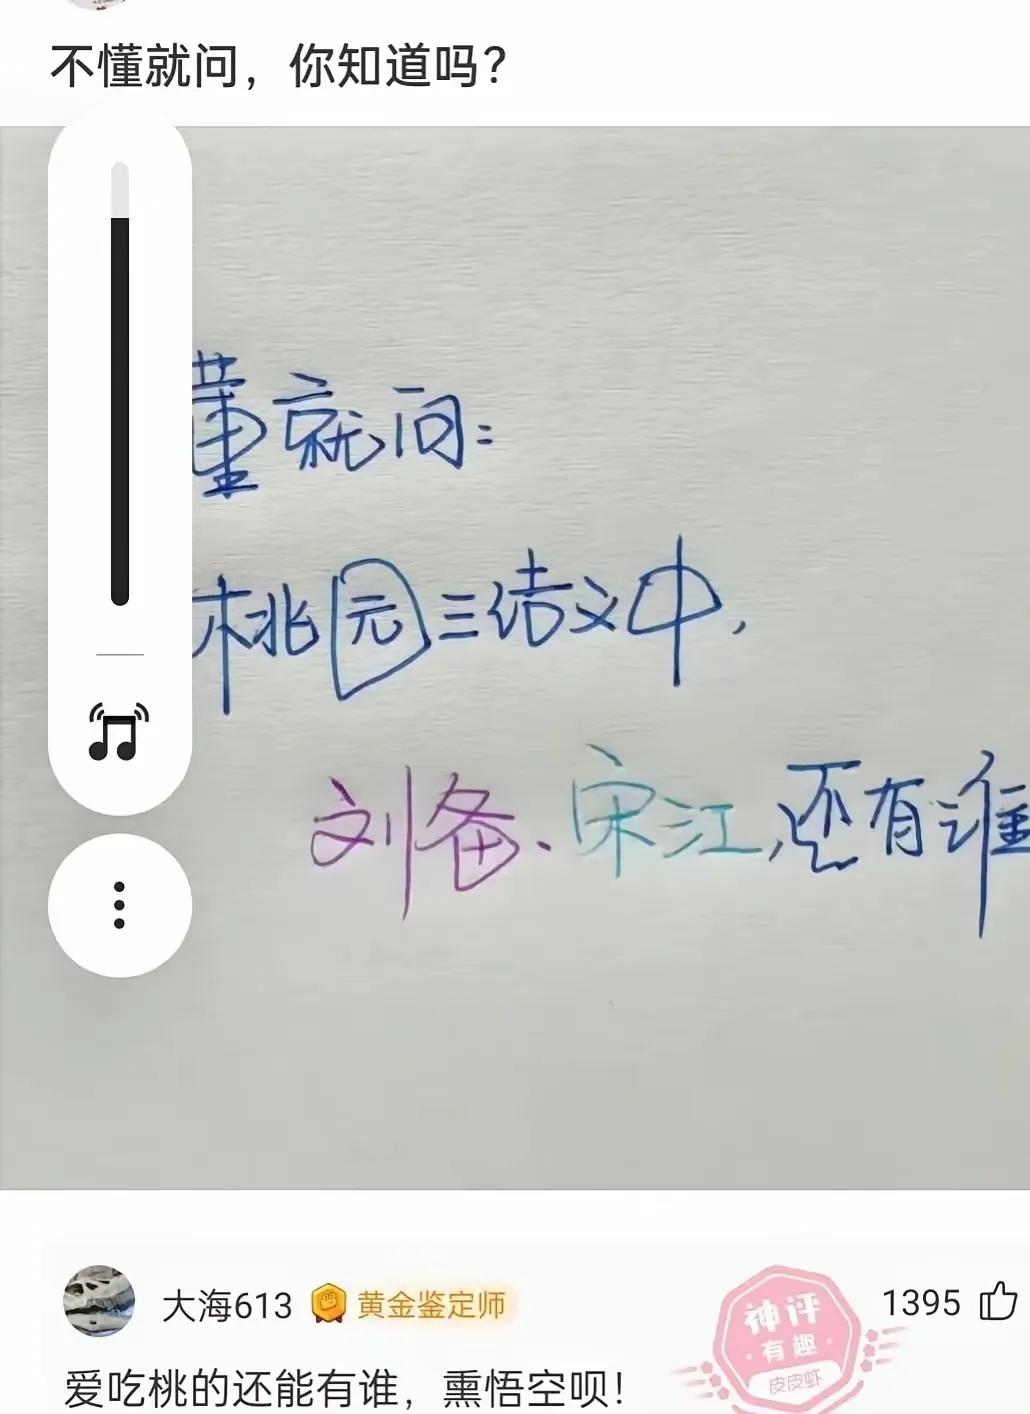 不懂就问，你知道吗？
董就问：
桃园三结义中，
刘备、宋江，还有谁
大海613 黄金鉴定师
神评
有趣
皮皮虾
1395
爱吃桃的还能有谁，熏悟空呗！